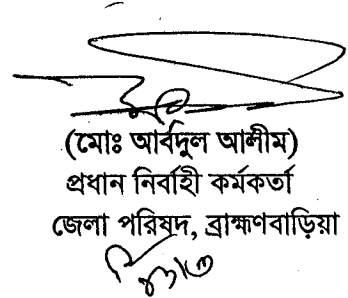 (মোঃ আবদুল আলীম)
প্রধান নির্বাহী কর্মকর্তা
জেলা পরিষদ, ব্রাহ্মণবাড়িয়া